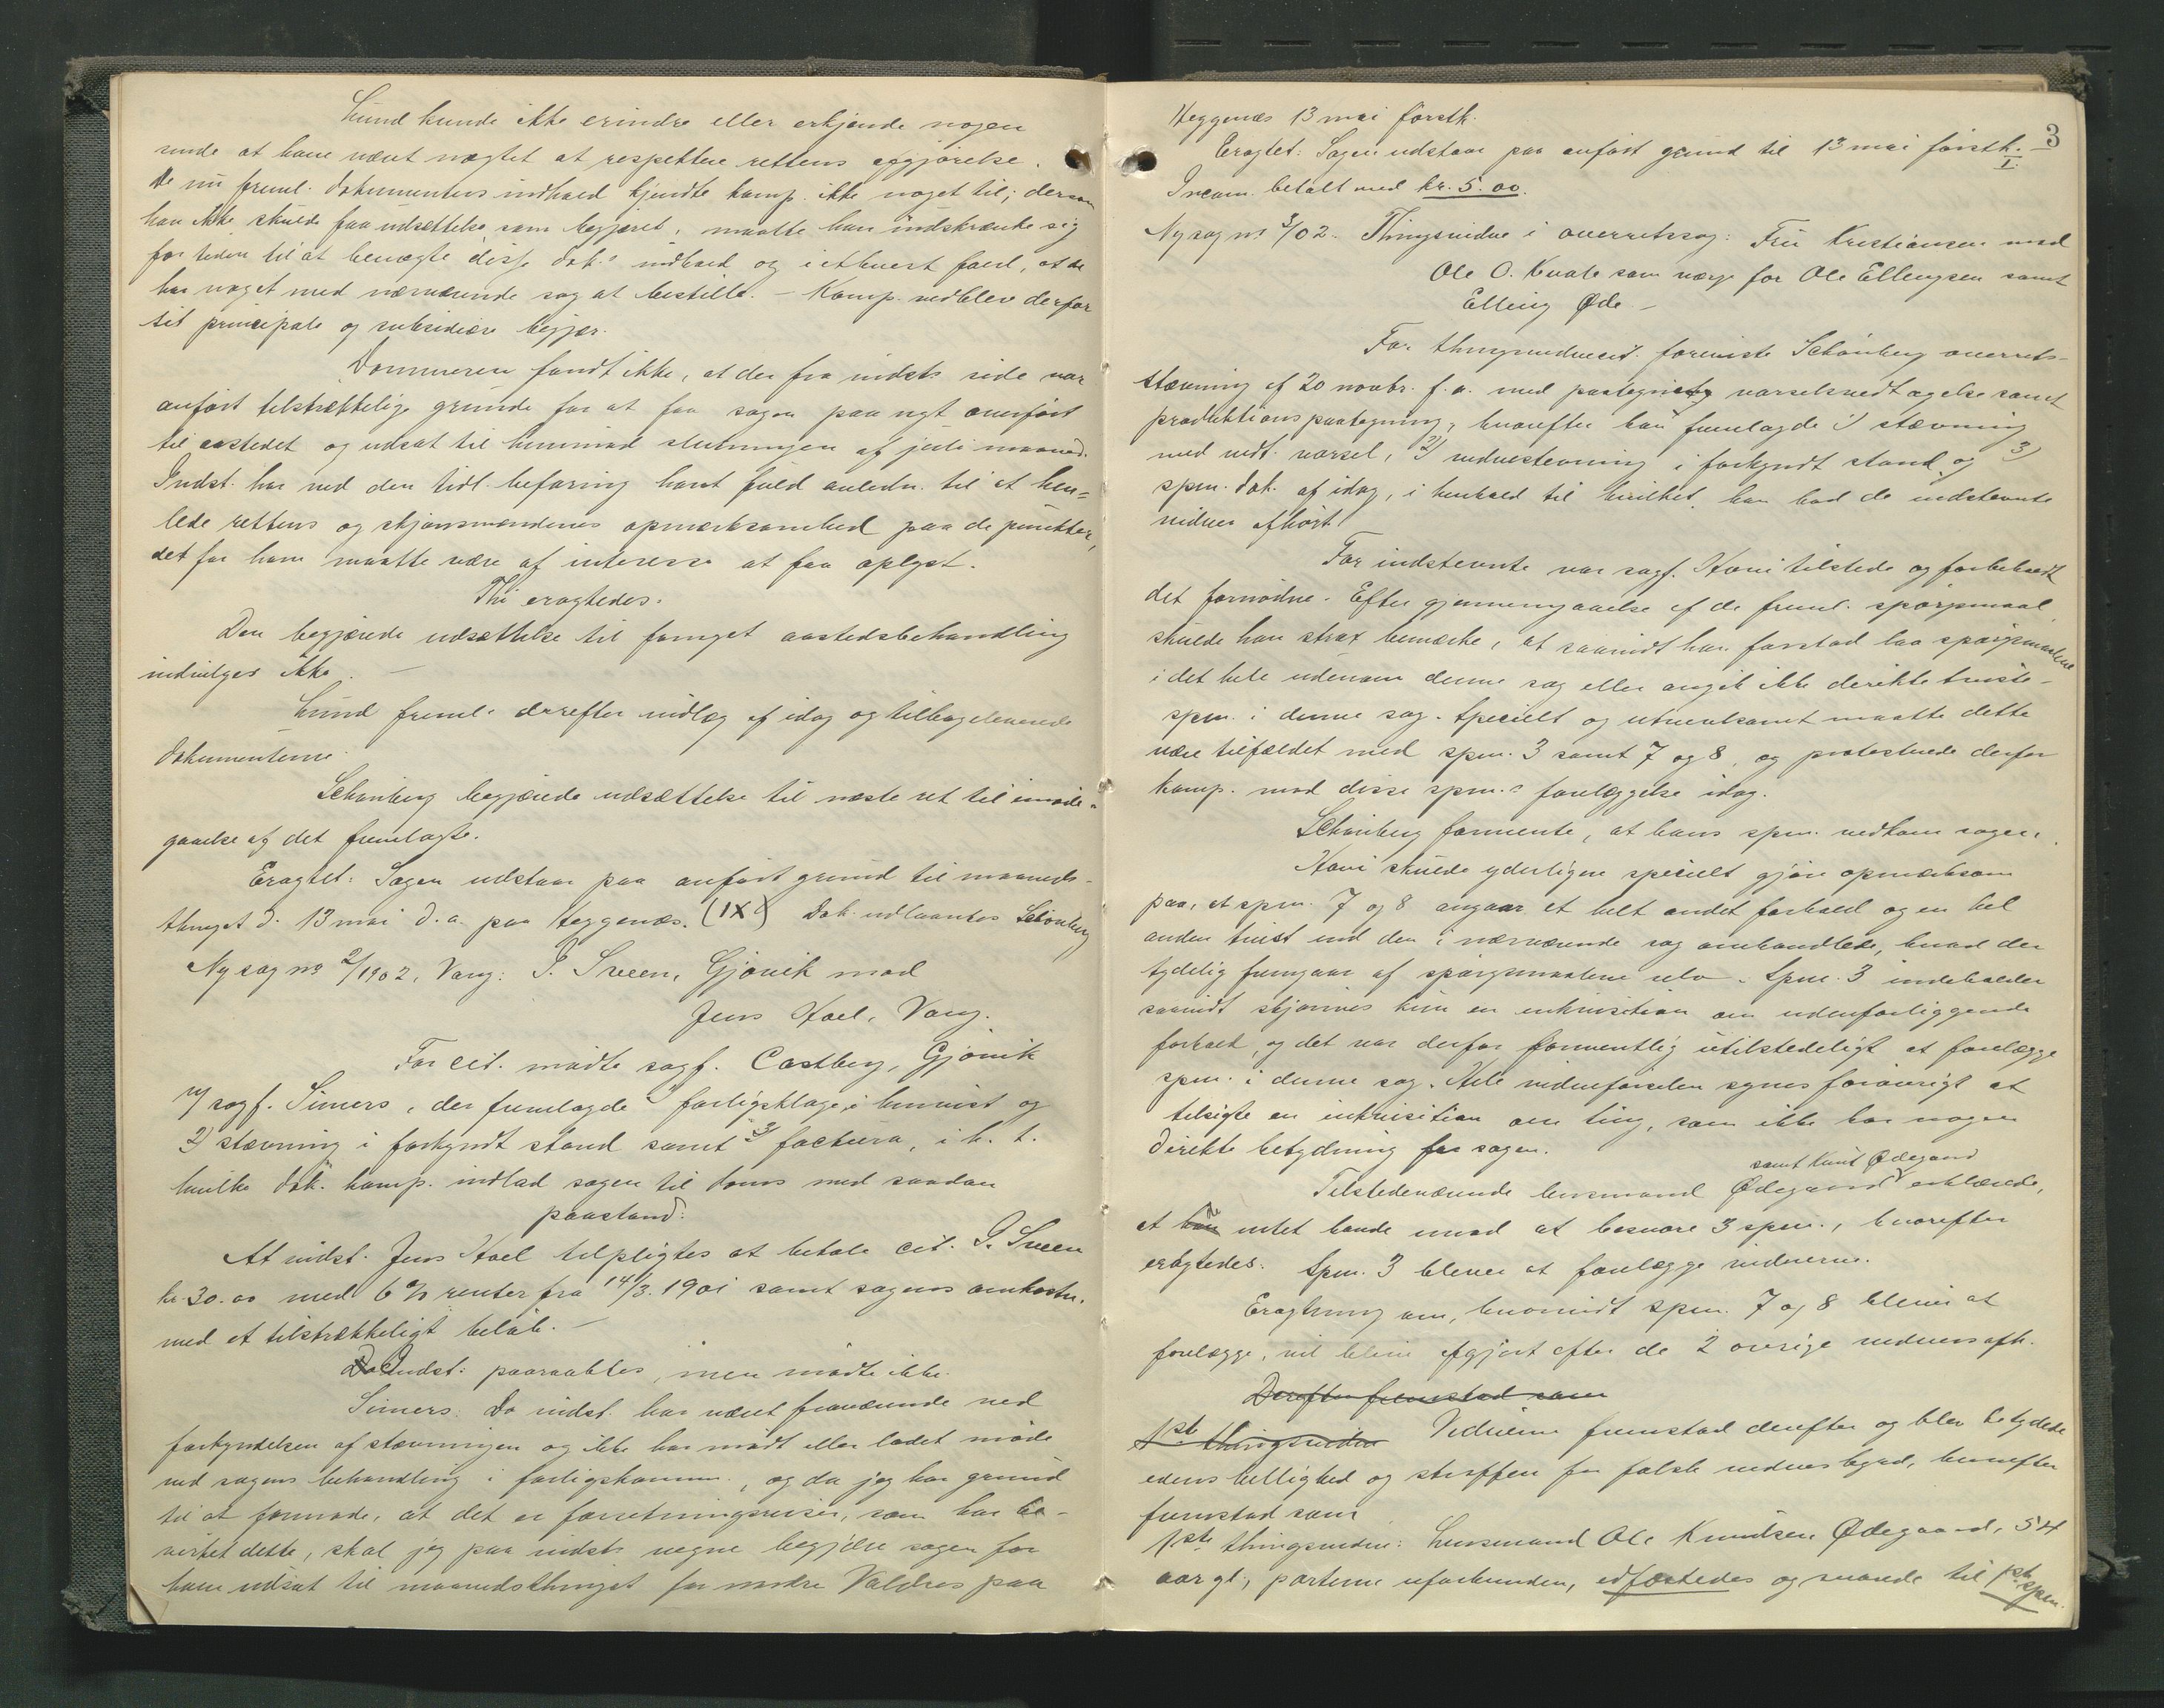 Lund kunde ikke erindre eller erkjende nogen
sinde at have været nægtet at respektere rettens afgjørelse.
De nu freml. dokumenters indhold kjendte komp. ikke noget til; dersom
han ikke skulde faa udsættelse som begjæret, maatte han indskrænke sig
for tiden til at benægte disse dok.s indhold og i ethvert fald, at de
har noget med nærværende sag at bestille. – Komp. vedblev derfor
sit principale og subsidiære begjær.
Dommeren fandt ikke, at der fra indst.s side var
anført tilstrækkelige grunde for at faa sagen paa nyt overført
til aastedet og udsat til henimod slutningen af juli maaned.
Indst. har ved den tidl. befaring havt fuld anledn. til at hen=
lede rettens og skjønsmændenes opmærksomhed paa de punkter,
det for ham maatte være af interesse at faa oplyst.
Thi eragtedes:
Den begjærede udsættelse til fornyet aastedsbehandling
indvilges ikke. –
Lund freml. derefter indlæg af idag og tilbageleverede
dokumenterne.
Schønberg begjærede udsættelse til næste ret til imøde=
gaaelse af det fremlagte.
Eragtet: Sagen udstaar paa anført grund til maaneds-
thinget d. 13 mai d.a. paa Heggenæs. (IX) Dok. udlaantes Schønberg
Ny sag no 2/1902, Vang: P. Sveen, Gjøvik mod
Jens Hoel, Vang.
For cit. mødte sagf. Castberg, Gjøvik
v/ sagf. Simers, der fremlagde 1) forligsklage i henvist og
2) stævning i forkyndt stand samt 3) factura, i h. t.
hvilke dok. komp. indlod sagen til doms med saadan
paastand:
At indst. Jens Hoel tilpligtes at betale cit. P. Sveen
kr. 30.00 med 6 % renter fra 14/3. 1901 samt sagens omkostn.
med et tilstrækkeligt beløb. –
Indst. paaraabtes, men mødte ikke.
Simers: Da indst. har været fraværende ved
forkyndelsen af stævningen og ikke har mødt eller ladet møde
ved sagens behandling i forligskomm., og da jeg har grund
til at formode, at det er forretningsreiser, som har be-
virket dette, skal jeg paa indst.s vegne begjære sagen for
ham udsat til maanedsthinget for nordre Valdres paa
3
Heggenæs 13 mai førstk.
Eragtet: Sagen udstaar paa anført grund til 13 mai førstk. I.
Incam. betalt med kr. 5.00.
Ny sag no 3/02. Thingsvidne i overretssag: Fru Kristiansen mod
Ole O. Kvale som værge for Ole Ellingsen samt
Elling Øde. –
For thingsvidnecit. foreviste Schønberg overrets-
stævning af 20 novbr. f.a. med paategnet varselsvedtagelse samt
produktionspaategning, hvorefter han fremlagde 1) stævning
med vedt. varsel, 2) vidnestevning i forkyndt stand og 3)
spm. dok. af idag, i henhold til hvilket han bad de indstevnte
vidner afhørt.
For indstevnte var sagf. Hovi tilstede og forbeholdt
det fornødne. Efter gjennemgaaelse af de freml. spørgsmaal
skulde han strax bemærke, at saavidt han forstod laa spørgsmaalene
i det hele udenom denne sag eller angik ikke direkte tviste-
spm. i denne sag. Specielt og utvivlsomt maatte dette
være tilfældet med spm. 3 samt 7 og 8, og protesterede derfor
komp. mod disse spm.s forelæggelse idag.
Schønberg formente, at hans spm. vedkom sagen.
Hovi skulde yderligere specielt gjøre opmerksom
paa, at spm. 7 og 8 angaar et helt andet forhold og en hel
anden tvist end den i nærværende sag omhandlede, hvad der
tydelig fremgaar af spørgsmaalene selv. Spm. 3 indeholder
saavidt skjønnes kun en inkvisition om udenforliggende
forhold, og det var derfor formentlig utilstedeligt at forelægge
spm. i denne sag. Hele vidneførselen synes forøvrigt at
tilsigte en inkvisition om ting, som ikke har nogen
direkte betydning for sagen.
samt Knut Ødegaard
Tilstedeværende lensmand Ødegaard erklærede,
at de intet havde imod at besvare 3 spm., hvorefter
eragtedes: Spm. 3 bliver at forelægge vidnerne.
Eragtning om, hvorvidt spm. 7 og 8 bliver at
forelægge, vil blive afgjort efter de 2 øvrige vidners afh.
Derefter fremstod som
1ste thingsvidne Vidnerne fremstod derefter og blev betydede
edens hellighed og straffen for falsk vidnesbyrd, hvorefter
fremstod som
1ste thingsvidne: Lensmand Ole Knudsen Ødegaard, 54
aar gl., parterne uforbunden, edfæstedes og svarede til 1ste spm.